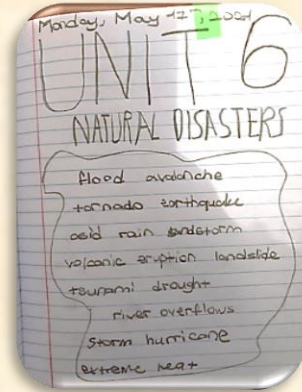 Monday, May 17th, 2021
UNIT 6
NATURAL DISASTERS
flood avalanche
tornado earthquake
acid rain sandstorm
volcanic eruption landslide
tsunami drought
river overflows
storm hurricane
extreme heat